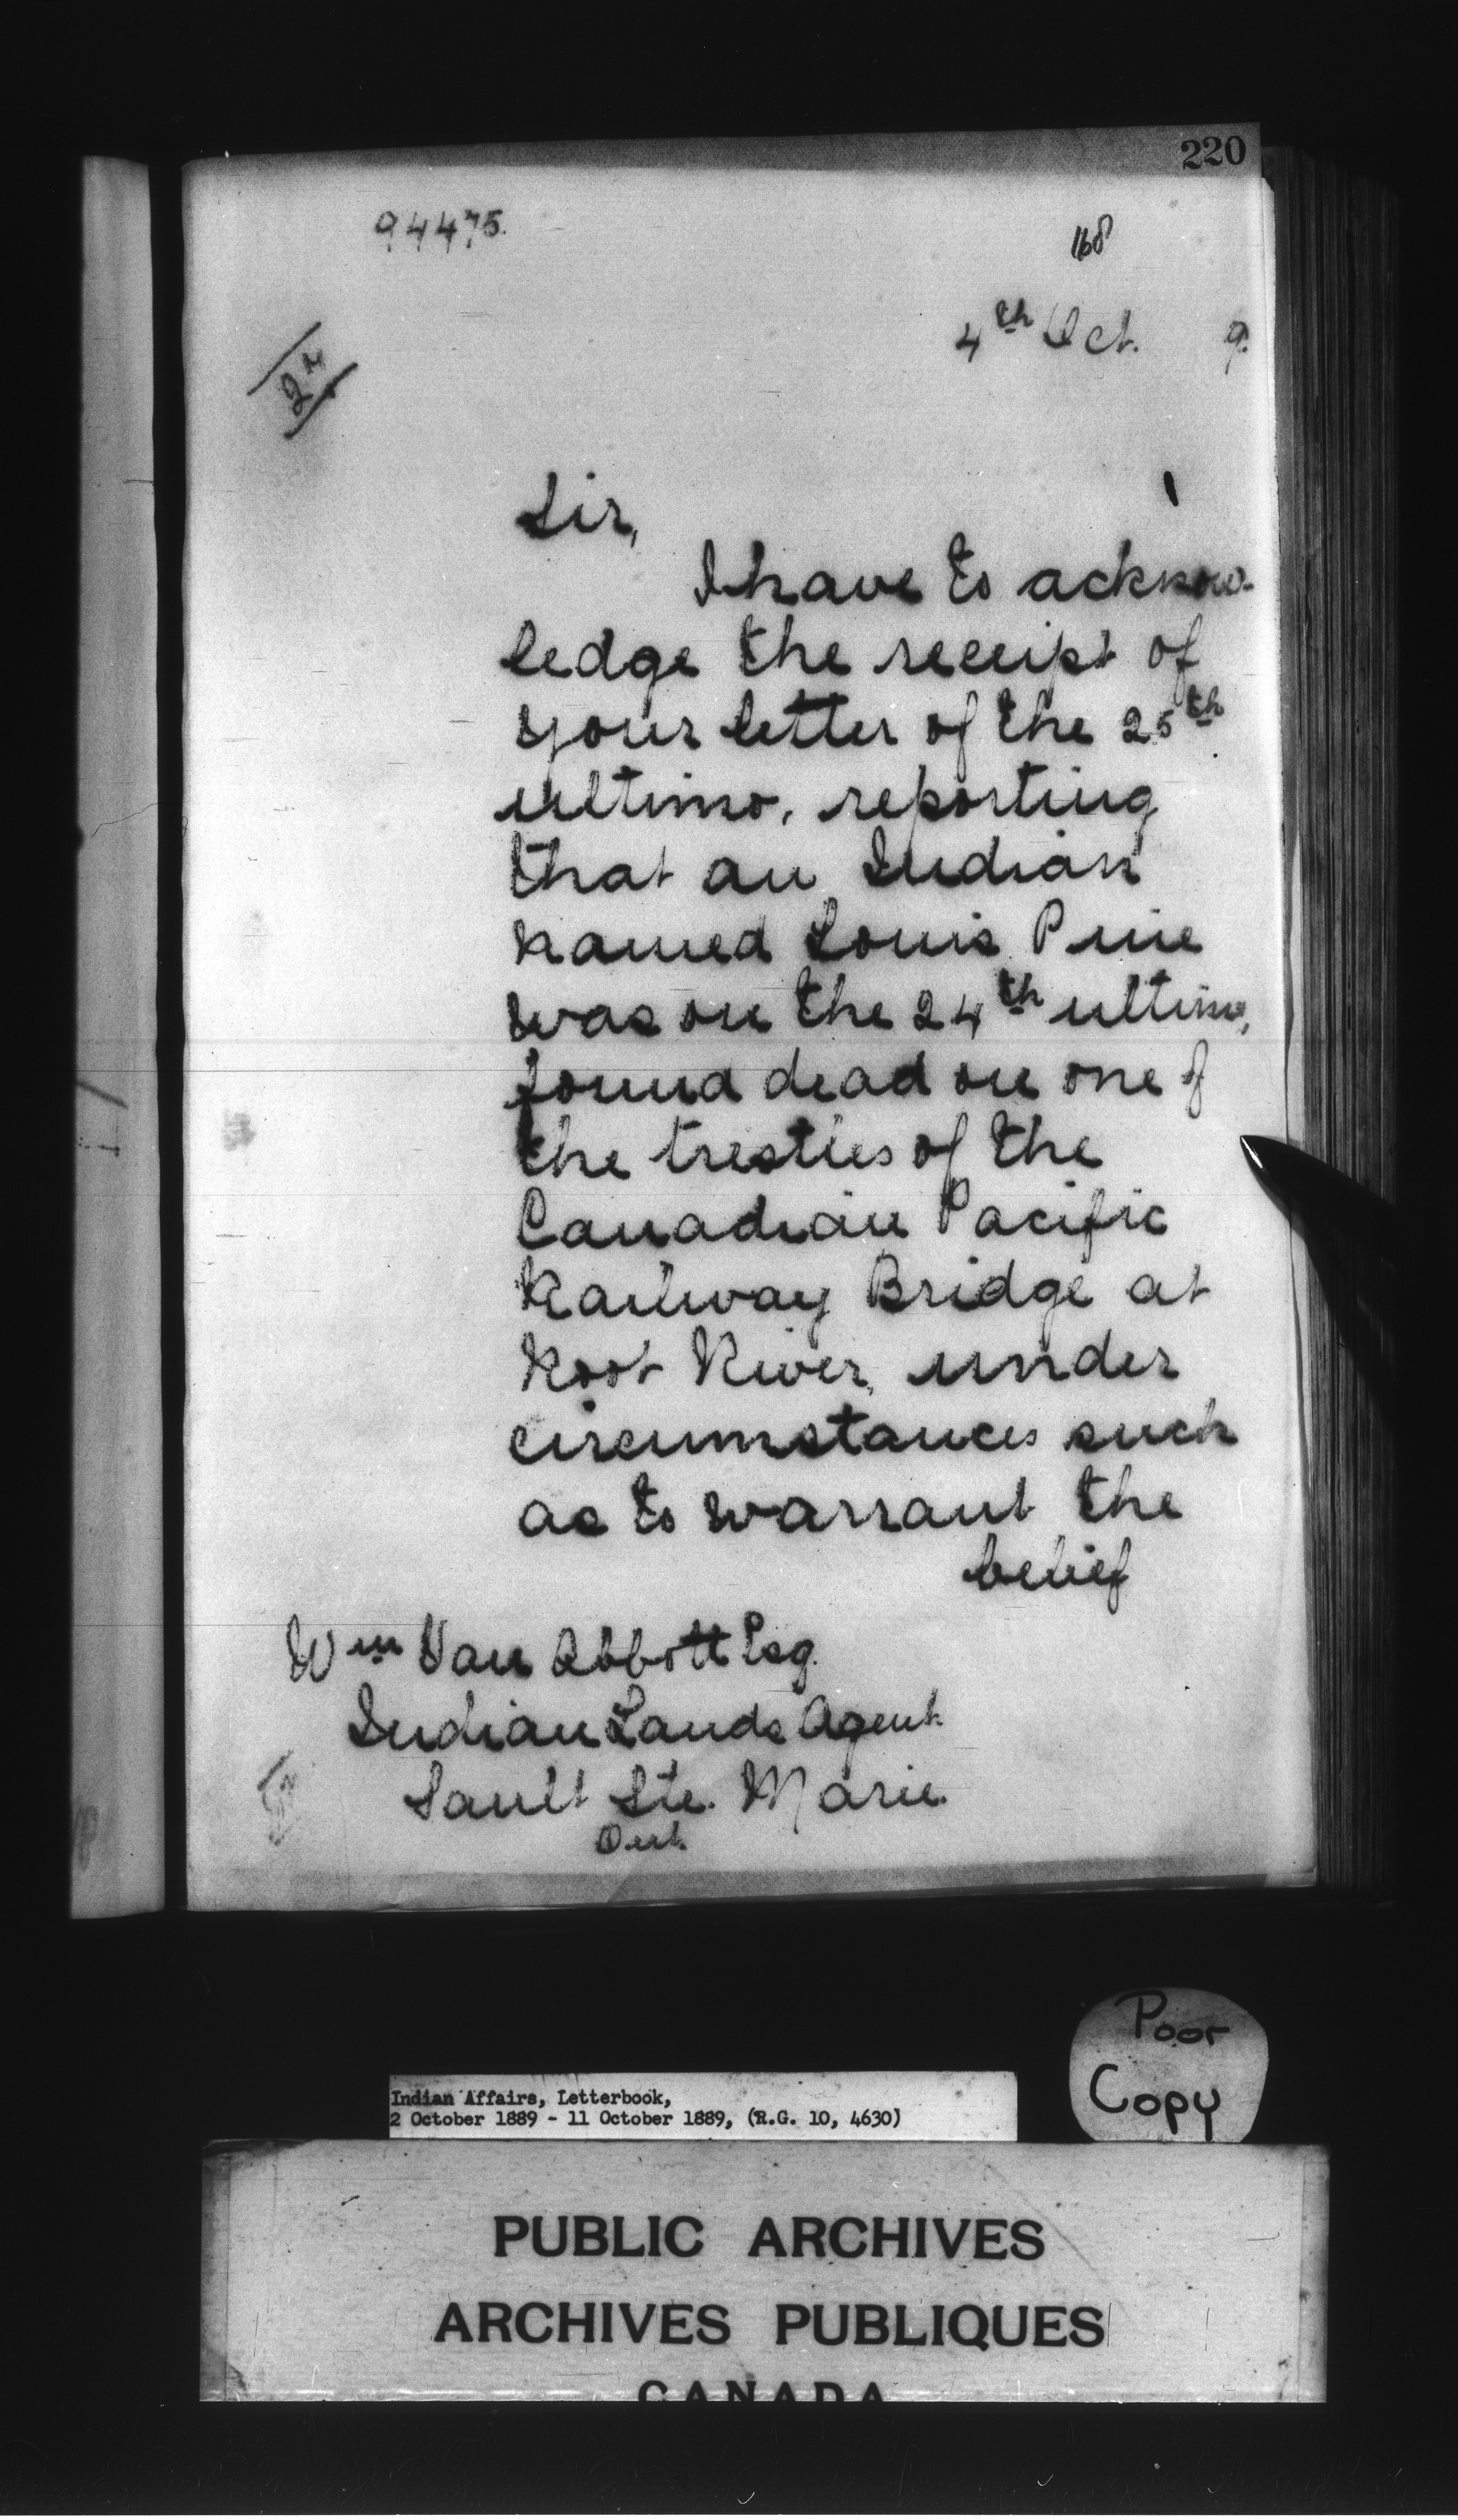 220
94475.
168
4th Oct. 9.
24
Sir,
I have to acknow-
ledge the receipt of
your letter of the 25th
ultimo, reporting
that an Indian
named Louis Pine
was on the 24th ultimo,
found dead on one of
the trestles of the
Canadian Pacific
Railway Bridge at
Root River, under
circumstances such
as to warrant the
belief
Wm Van Abbott Esq.
Indian Lands Agent
Sault Ste. Marie
Ont.
Poor
Copy
Indian Affairs, Letterbook,
2 October 1889 - 11 October 1889, (R.G. 10, 4630)
PUBLIC ARCHIVES
ARCHIVES PUBLIQUES
CANADA